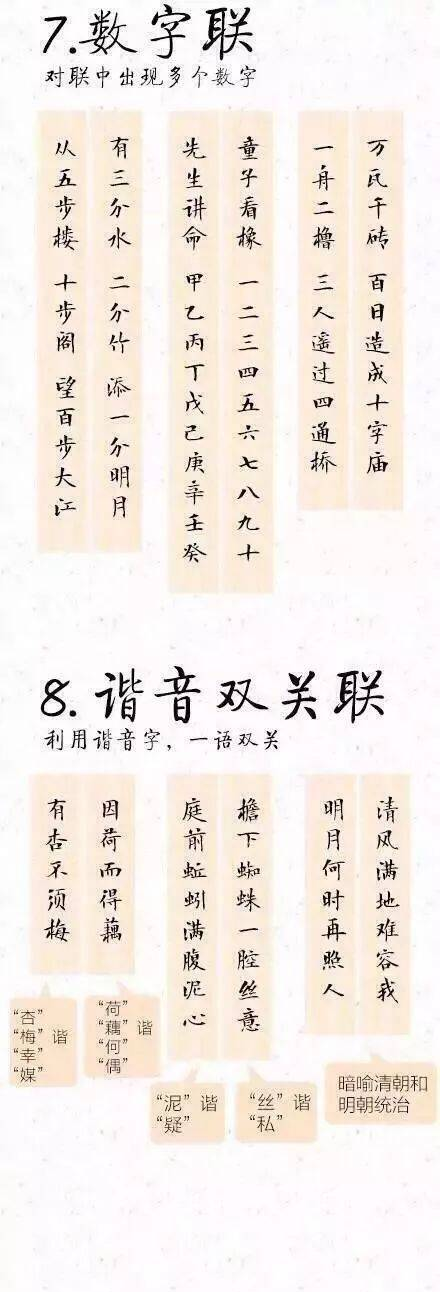 7.数字联
对联中出现多个数字
万瓦千砖 百日造成十字庙
一舟二橹 三人遥过四通桥
童子看橡 一二三四五六七八九十
先生讲命 甲乙丙丁戊己庚辛壬癸
有三分水 二分竹 添一分明月
从五步楼 十步阁 望百步大江
8.谐音双关联
利用谐音字，一语双关
清风满地难容我
明月何时再照人
暗喻清朝和
明朝统治
檐下蜘蛛一腔丝意
“丝” 谐
“私”
庭前蚯蚓满腹泥心
“泥” 谐
“疑”
因荷而得藕
“荷”
“藕” 谐
“何”
“偶”
有杏不须梅
“杏”
“梅” 谐
“幸”
“媒”